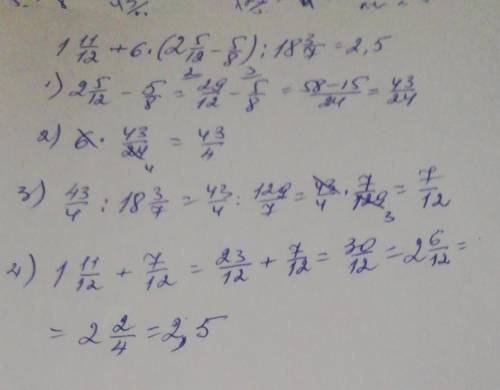 1 11/12 + 6·(2 5/12 - 5/8) : 18 3/7 = 2,5
1) 2 5/12 - 5/8 = 29/12 - 5/8 = 58-15/24 = 43/24
2) 6 · 43/24 4 = 43/4
3) 43/4 : 18 3/7 = 43/4 : 129/7 = 43/4 · 7/129 3 = 7/12
4) 1 11/12 + 7/12 = 23/12 + 7/12 = 30/12 = 2 6/12 =
= 2 2/4 = 2,5